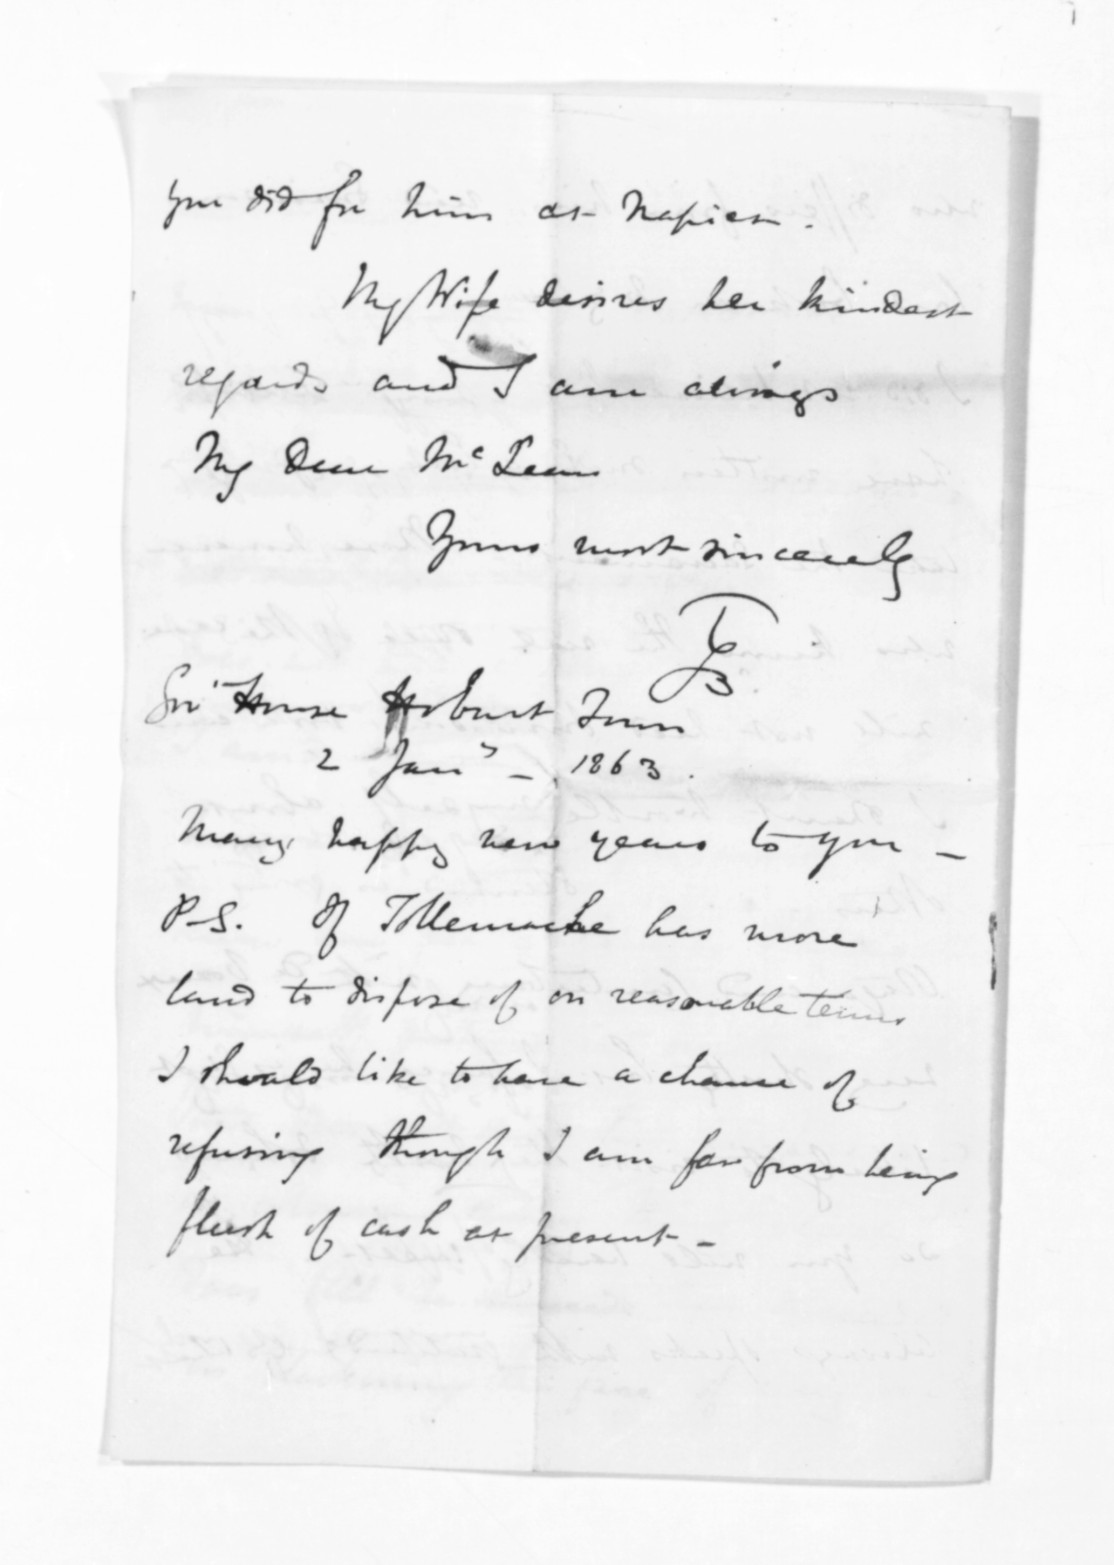 you did for him at Napier.
My Wife desires her kindest
regards and I am always
My Dear McLean
Yours most sincerely
TGB
Govt House Hobart Town
2 Jany – 1863.
Many happy new years to you –
P–S. If Tollemache has more
land to dispose of on reasonable terms
I should like to have a chance of
refusing though I am far from being
flush of cash at present –